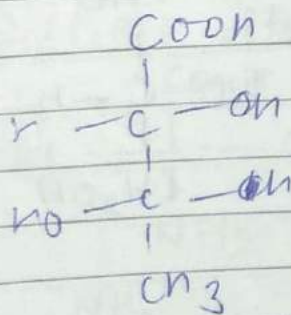 COOH
H — C — OH
HO — C — OH
CH3